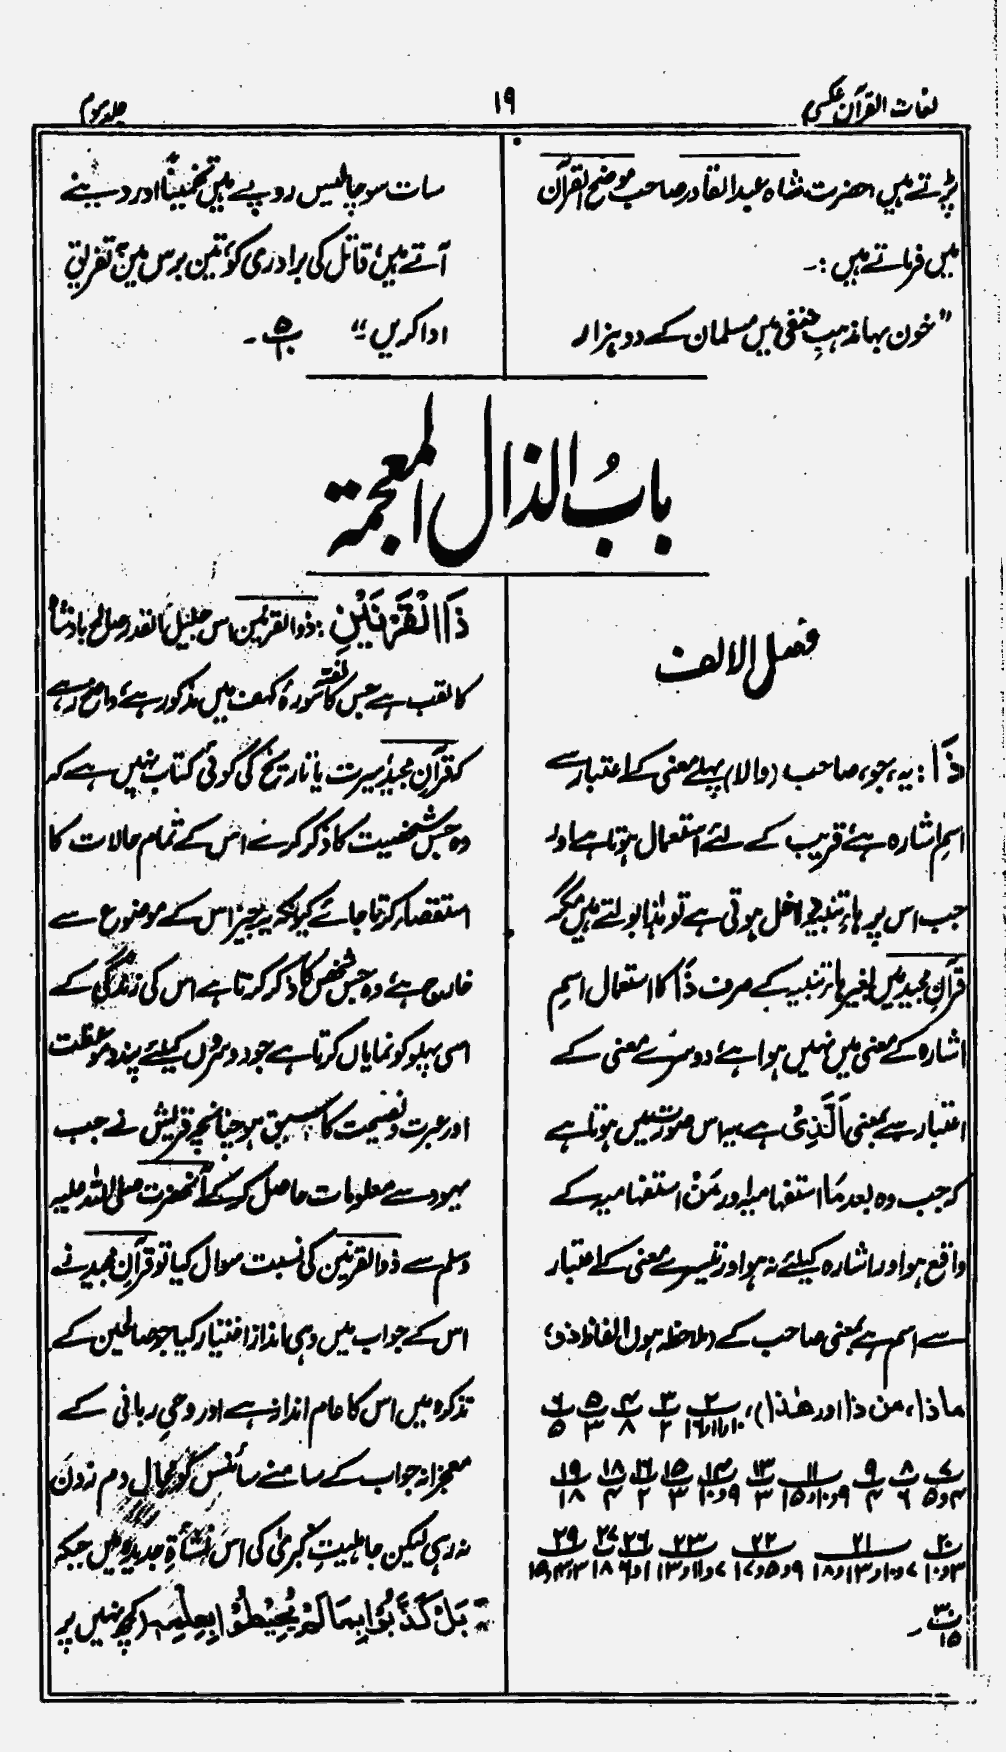 لغات القرآن عکسی
۱۹
جلد سوم
پڑتے ہیں، حضرت شاہ عبدالقادر صاحب موضح القرآن
میں فرماتے ہیں :۔
"خون بہا مذہبِ حنفی میں مسلمان کے دو ہزار
سات سو چالیس روپے ہیں تخمیناً اور دینے
آتے ہیں، قاتل کی برادری کو، تین برس میں تفریق
ادا کریں" ۵ پ ۱۰ ۔
بابُ الذال المعجمة
فصل الالف
ذَا : یہ، جو، صاحب (والا) پہلے معنی کے اعتبار سے
اسم اشارہ ہے، قریب کے لئے استعمال ہوتا ہے اور
جب اس پر ہاء تنبیہ داخل ہوتی ہے تو ہٰذا بولتے ہیں مگر
قرآن مجید میں بغیر ہاء تنبیہ کے صرف ذَا کا استعمال اسمِ
اشارہ کے معنی میں نہیں ہوا ہے، دوسرے معنی کے
اعتبار سے بمعنی اَلَّذِیْ ہے، یہ اس صورت میں ہوتا ہے
کہ جب وہ بعد مَا استفہامیہ اور مَنْ استفہامیہ کے
واقع ہو اور اشارہ کیلئے نہ ہو اور تیسرے معنی کے اعتبار
سے اسم ہے بمعنی صاحب کے (ملاحظہ ہوں الفاظ ذو،
ماذا، من ذا اور ھٰذا)، ۲ ۱۰و۱۱و۱۶ ۳ ۲ ۴ ۸ ۵ ۳ ۶ ۵
۷ ۴و۵ ۸ ۶ ۹ ۴ ۱۱ ۹و۱۰و۱۵ ۱۳ ۳ ۱۴ ۹و۱۰ ۱۵ ۳ ۱۶ ۲ ۱۸ ۴ ۱۹ ۱۸
۲۰ ۳و۱۰ ۲۱ ۷و۱۰و۱۳و۱۸ ۲۲ ۹و۵و۱۷ ۲۳ ۷و۱۱و۱۳ ۲۶ ۱و۶ ۲۷ ۱۸ ۲۹
۳۰ ۱۵ ۔
ذَا الْقَرْنَيْنِ : ذوالقرنین اس جلیل القدر صالح بادشاہ
کا لقب ہے جس کا قصہ سورۂ کہف میں مذکور ہے، واضح رہے
کہ قرآن مجید سیرت یا تاریخ کی کوئی کتاب نہیں ہے کہ
وہ جس شخصیت کا ذکر کرے اس کے تمام حالات کا
استقصاء کرتا جائے کیونکہ یہ چیز اس کے موضوع سے
خارج ہے، وہ جس شخص کا ذکر کرتا ہے اس کی زندگی کے
اسی پہلو کو نمایاں کرتا ہے جو دوسروں کیلئے پند و موعظت
اور عبرت و نصیحت کا سبق ہو، چنانچہ قریش نے جب
یہود سے معلومات حاصل کر کے آنحضرت صلی اللہ علیہ
وسلم سے ذوالقرنین کی نسبت سوال کیا تو قرآن مجید نے
اس کے جواب میں وہی انداز اختیار کیا جو صالحین کے
تذکرہ میں اس کا عام انداز ہے اور وحیِ ربانی کے
معجزانہ جواب کے سامنے سائنس کو مجال دم زدن
نہ رہی لیکن جاہلیتِ کبریٰ کی اس نشأۃِ جدیدہ میں جبکہ
بَلْ كَذَّبُوْا بِمَا لَمْ يُحِيْطُوْا بِعِلْمِهٖ (کچھ نہیں پر